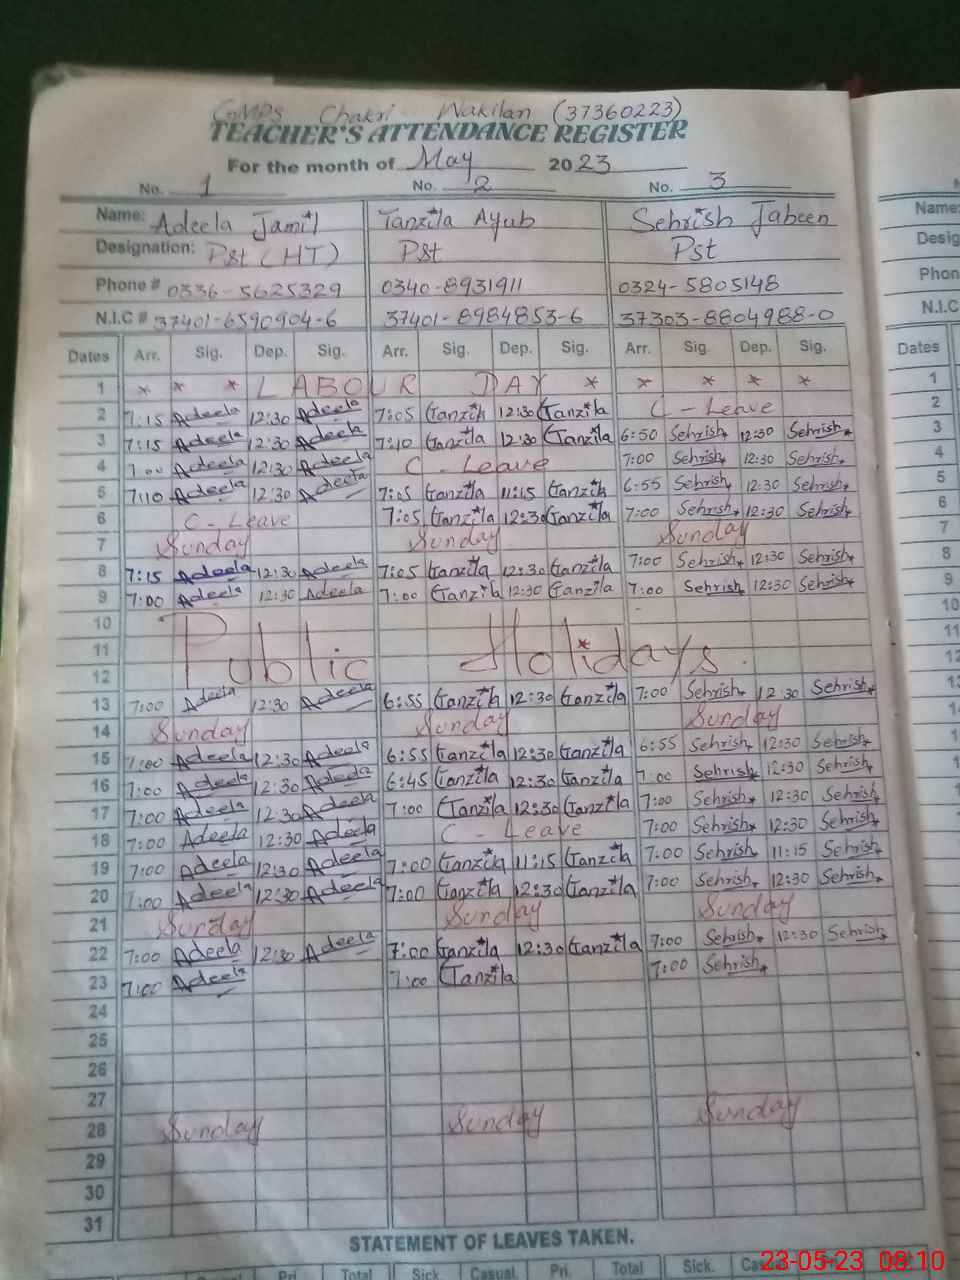 GMPS Chakri Wakilan (37360223)
TEACHER'S ATTENDANCE REGISTER
For the month of May 2023
No. 1 No. 2 No. 3
Name: Adeela Jamil Tanzila Ayub Sehrish Jabeen Name:
Designation: Pst (HT) Pst Pst Desig
Phone # 0336-5625329 0340-8931911 0324-5805148 Phon
N.I.C # 37401-6590904-6 37401-8984853-6 37303-8804988-0 N.I.C
Dates Arr. Sig. Dep. Sig. Arr. Sig. Dep. Sig. Arr. Sig. Dep. Sig. Dates
1 * * * LABOUR DAY * * * * * 1
2 7:15 Adeela 12:30 Adeela 7:05 Tanzila 12:30 Tanzila C-Leave 2
3 7:15 Adeela 12:30 Adeela 7:10 Tanzila 12:30 Tanzila 6:50 Sehrish 12:30 Sehrish 3
4 7:00 Adeela 12:30 Adeela C-Leave 7:00 Sehrish 12:30 Sehrish 4
5 7:10 Adeela 12:30 Adeela 7:05 Tanzila 11:15 Tanzila 6:55 Sehrish 12:30 Sehrish 5
6 C-Leave 7:05 Tanzila 12:30 Tanzila 7:00 Sehrish 12:30 Sehrish 6
7 Sunday Sunday Sunday 7
8 7:15 Adeela 12:30 Adeela 7:05 Tanzila 12:30 Tanzila 7:00 Sehrish 12:30 Sehrish 8
9 7:00 Adeela 12:30 Adeela 7:00 Tanzila 12:30 Tanzila 7:00 Sehrish 12:30 Sehrish 9
10 10
11 Public Holidays 11
12 12
13 7:00 Adeela 12:30 Adeela 6:55 Tanzila 12:30 Tanzila 7:00 Sehrish 12:30 Sehrish
14 Sunday Sunday Sunday
15 7:00 Adeela 12:30 Adeela 6:55 Tanzila 12:30 Tanzila 6:55 Sehrish 12:30 Sehrish
16 7:00 Adeela 12:30 Adeela 6:45 Tanzila 12:30 Tanzila 7:00 Sehrish 12:30 Sehrish
17 7:00 Adeela 12:30 Adeela 7:00 Tanzila 12:30 Tanzila 7:00 Sehrish 12:30 Sehrish
18 7:00 Adeela 12:30 Adeela C-Leave 7:00 Sehrish 12:30 Sehrish
19 7:00 Adeela 12:30 Adeela 7:00 Tanzila 11:15 Tanzila 7:00 Sehrish 11:15 Sehrish
20 7:00 Adeela 12:30 Adeela 7:00 Tanzila 12:30 Tanzila 7:00 Sehrish 12:30 Sehrish
21 Sunday Sunday Sunday
22 7:00 Adeela 12:30 Adeela 7:00 Tanzila 12:30 Tanzila 7:00 Sehrish 12:30 Sehrish
23 7:00 Adeela 7:00 Tanzila 7:00 Sehrish
24
25
26
27
28 Sunday Sunday Sunday
29
30
31
STATEMENT OF LEAVES TAKEN.
Casual Pri. Total Sick. Casual. Pri. Total Sick.
23-05-23 08:10